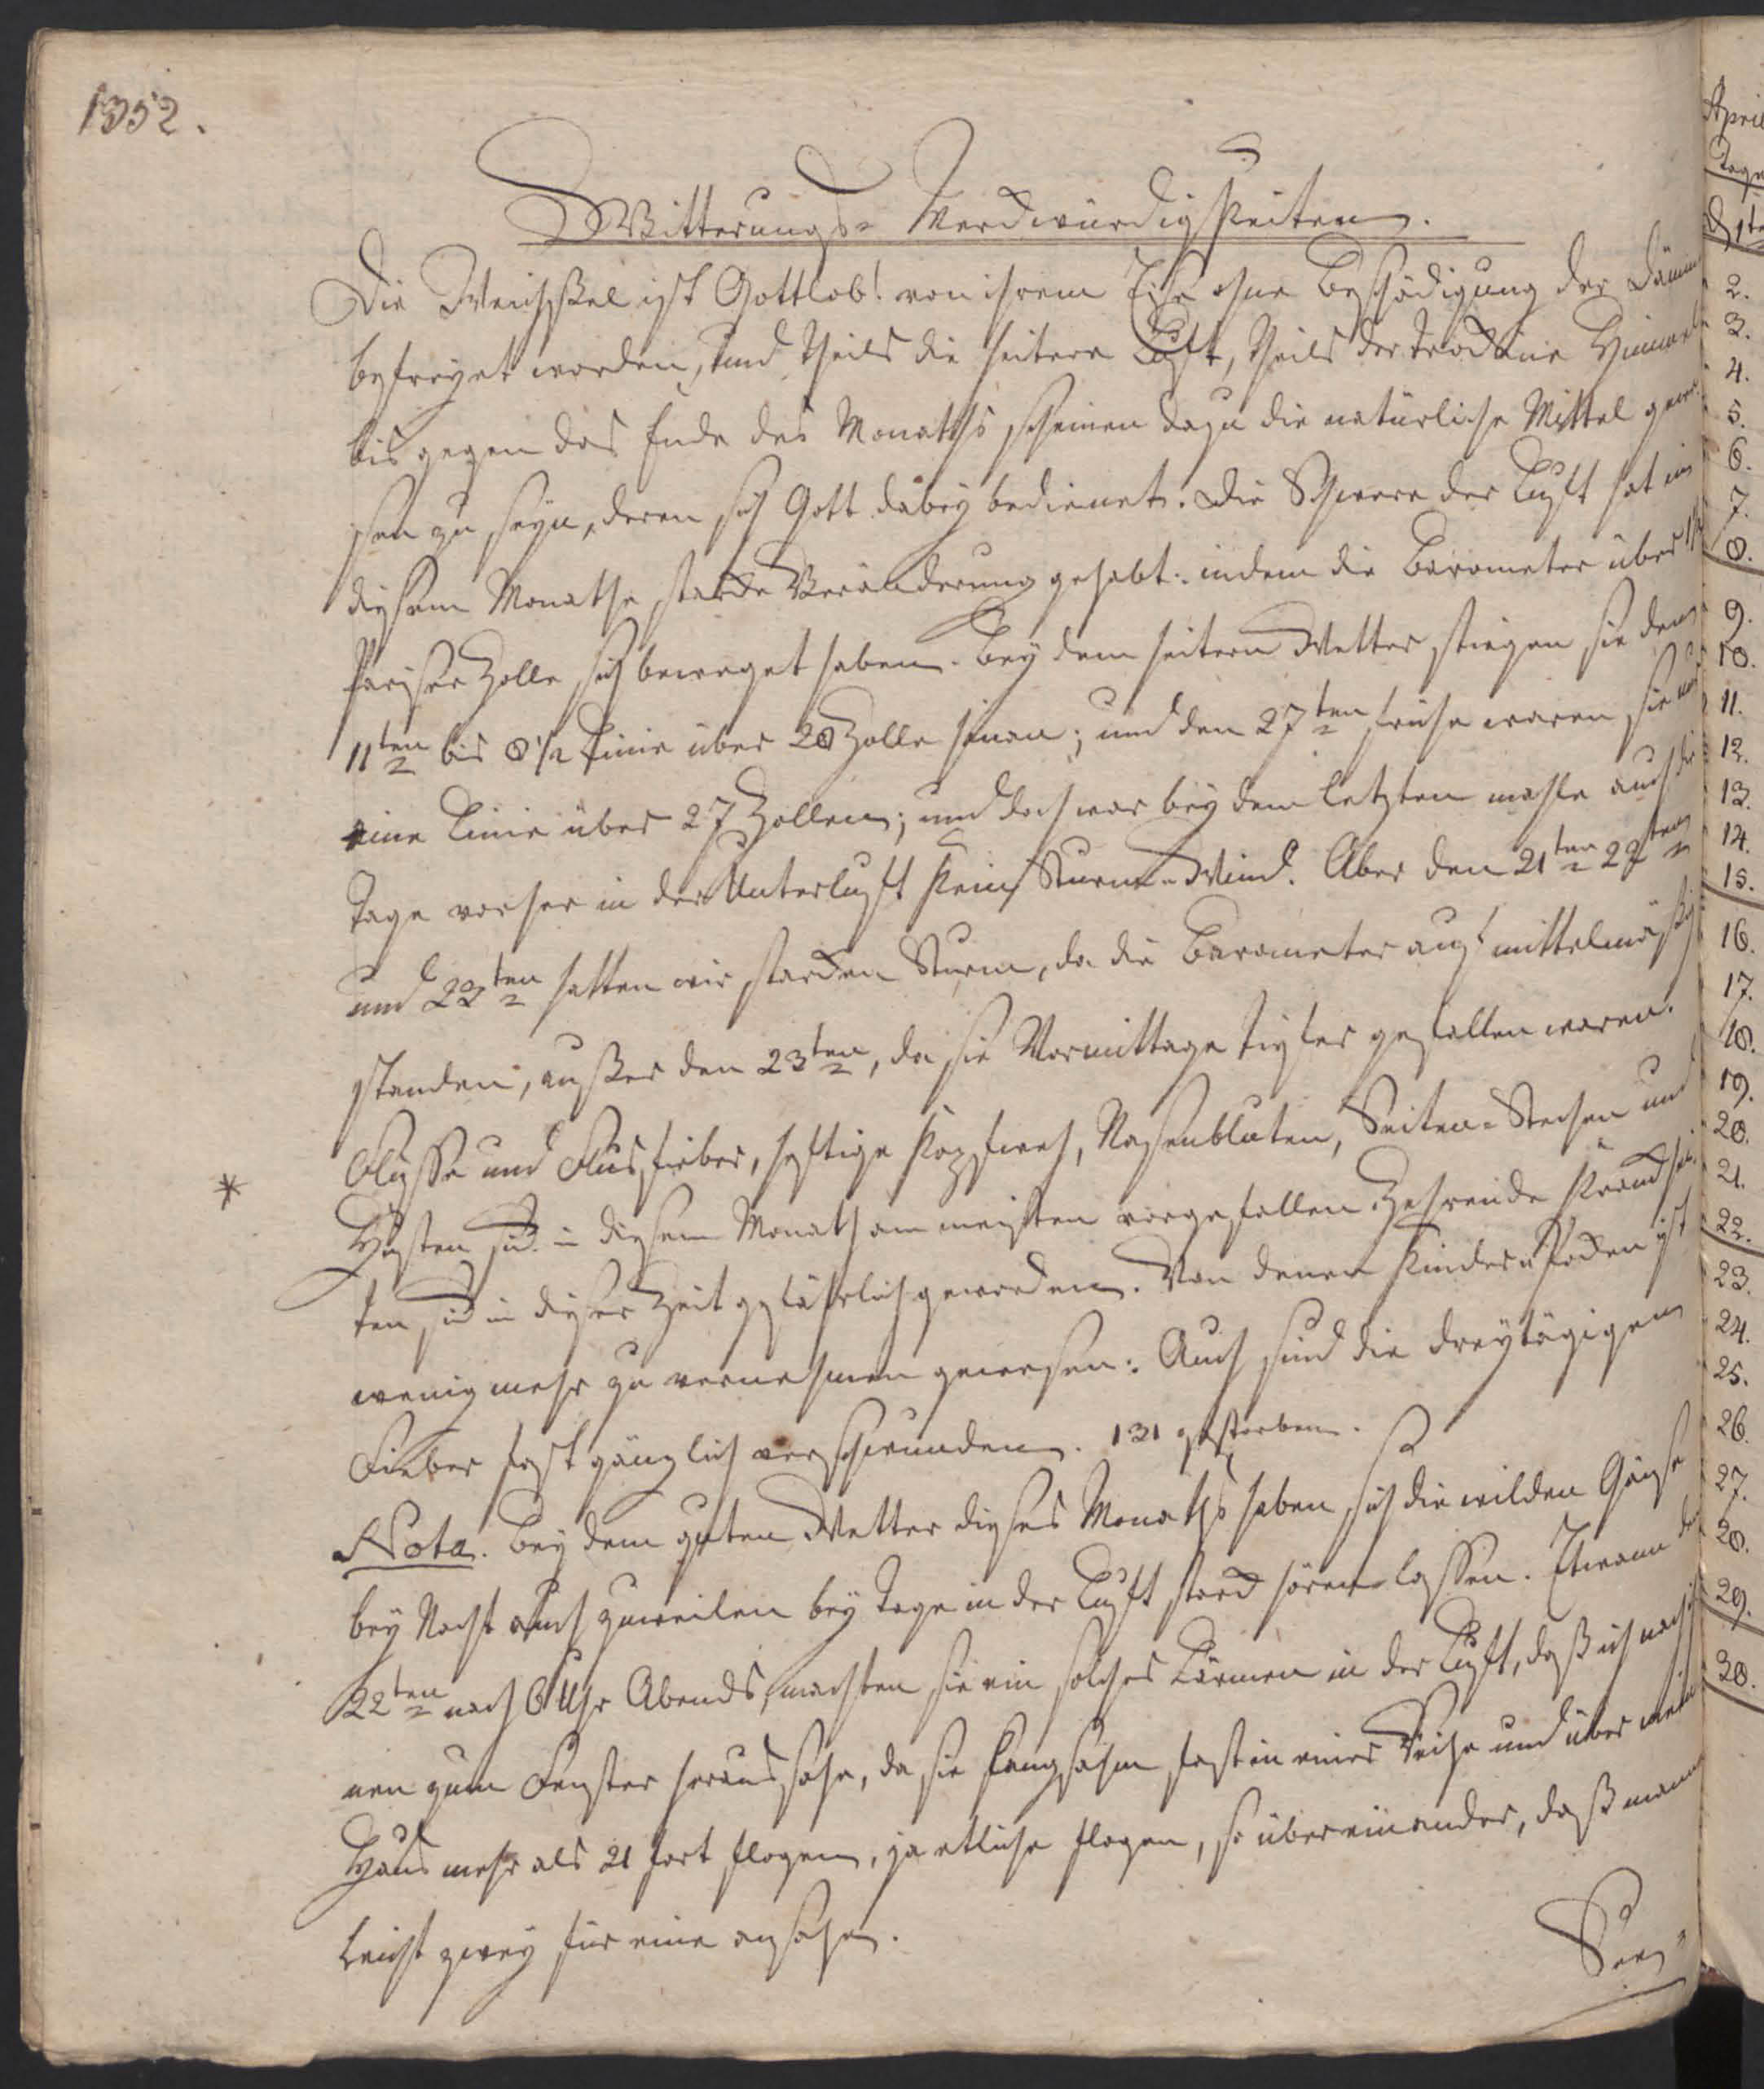 1352.
Witterungs= Merckwürdigkeiten.
Die Weichßel ist Gottlob! von ihrem Eise ohne Beschädigung der Dämme
befreyet worden, und theils die heitere Luft, theils der trockene Himmel
bis gegen das Ende des Monaths scheinen dazu die natürliche Mittel gewe-
sen zu seyn, deren sich Gott dabey bedienet. Die Schwere der Luft hat in
diesem Monathe starcke Veränderung gehabt: indem die Barometer über
Pariser Zolle sich beweget haben. Bey dem heitern Wetter stiegen sie den
11ten bis 8 1/2 Linie über 28 Zolle hinan; und den 27ten frühe waren sie nur
eine Linie über 27 Zollen; und doch war bey dem letzten mahle auch die
Tage vorher in der Unterluft kein Sturm=Wind. Aber den 21ten 22ten
und 23ten hatten wir starcken Sturm, da die Barometer auch mittelmäßig
standen, außer den 23ten, da sie Vormittage tiefer gefallen waren.
Flüsse und Flusfieber, heftige Kopfweh, Nasenbluten, Seiten=Stechen und
* Husten sind in diesem Monath am meisten vorgefallen. Zehrende Kranckhei-
ten sind in dieser Zeit gefährlich geworden. Von denen Kinder=Pocken ist
wenig mehr zu vernehmen gewesen: Auch sind die dreytägigen
Fieber fast gänzlich verschwunden. 131 gestorben.
Nota. Bey dem guten Wetter dieses Monaths haben sich die wilden Gänse
bey Nacht auch zuweilen bey Tage in der Luft starck hören lassen. Etwann den
22ten nach 6 Uhr Abends, machten sie ein solches Lärmen in der Luft, daß ich nach ih-
nen zum Fenster heraussahe, da sie langsahm fast in einer Reihe und über mein
Haus mehr als 21 fort flogen, ja etliche flogen, so übereinander, daß mann
leicht zwey für eine ansahe.
April
Tage
d 1te
2.
3.
4.
5.
6.
7.
8.
9.
10.
11.
12.
13.
14.
15.
16.
17.
18.
19.
20.
21.
22.
23.
24.
25.
26.
27.
28.
29.
30.